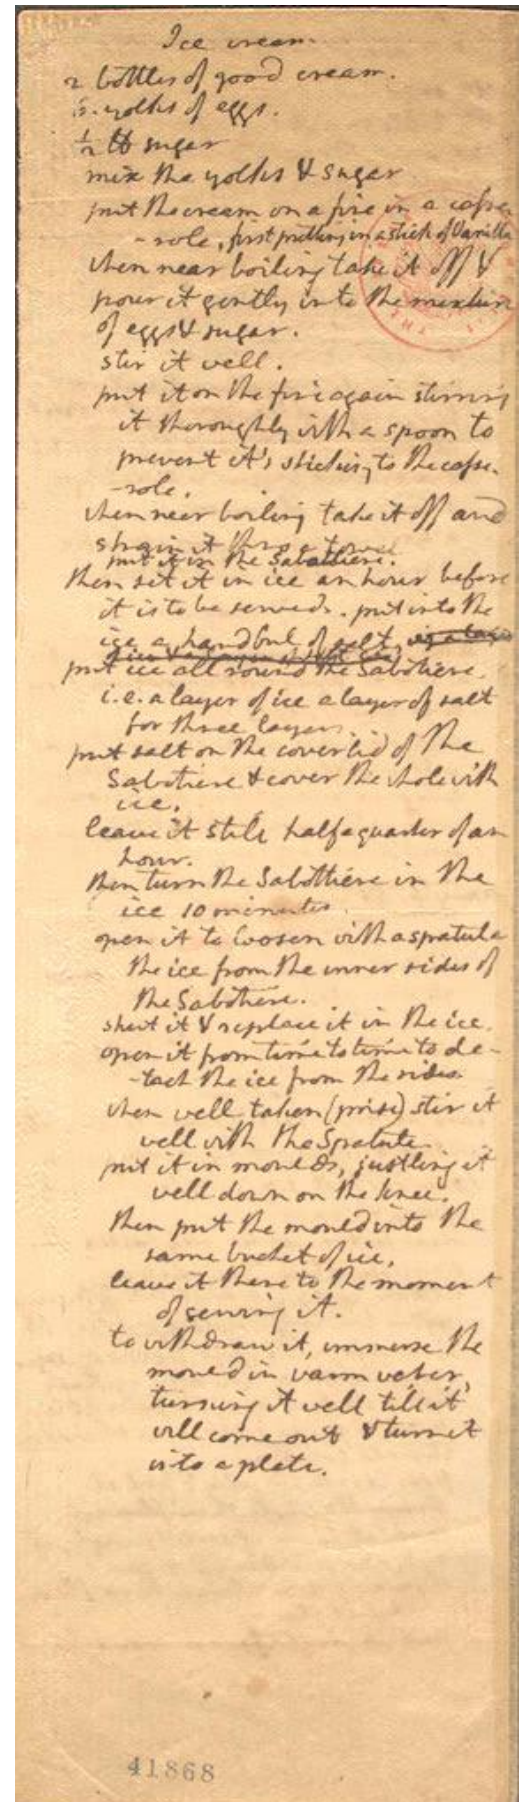 Ice cream.
2 bottles of good cream.
6. yolks of eggs.
½ ℔ sugar
mix the yolks & sugar
put the cream on a fire in a casse-
-role, first putting in a stick of Vanilla.
when near boiling take it off &
pour it gently into the mixture
of eggs & sugar.
stir it well.
put it on the fire again stirring
it thoroughly with a spoon to
prevent it's sticking to the casse-
-role.
when near boiling take it off and
strain it thro' a towel.
put it in the Sabottiere.
then set it in ice an hour before
it is to be served. put into the
ice a handful of salt.
put ice all round the Sabotiere.
i.e. a layer of ice a layer of salt
for three layers.
put salt on the coverlid of the
Sabotiere & cover the whole with
ice.
leave it still half a quarter of an
hour.
then turn the Sabottiere in the
ice 10 minutes
open it to loosen with a spatula
the ice from the inner sides of
the Sabotiere.
shut it & replace it in the ice.
open it from time to time to de-
-tach the ice from the sides.
when well taken (prise) stir it
well with the Spatula.
put it in moulds, justling it
well down on the knee.
then put the mould into the
same bucket of ice.
leave it there to the moment
of serving it.
to withdraw it, immerse the
mould in warm water,
turning it well till it
will come out & turn it
into a plate.
41868